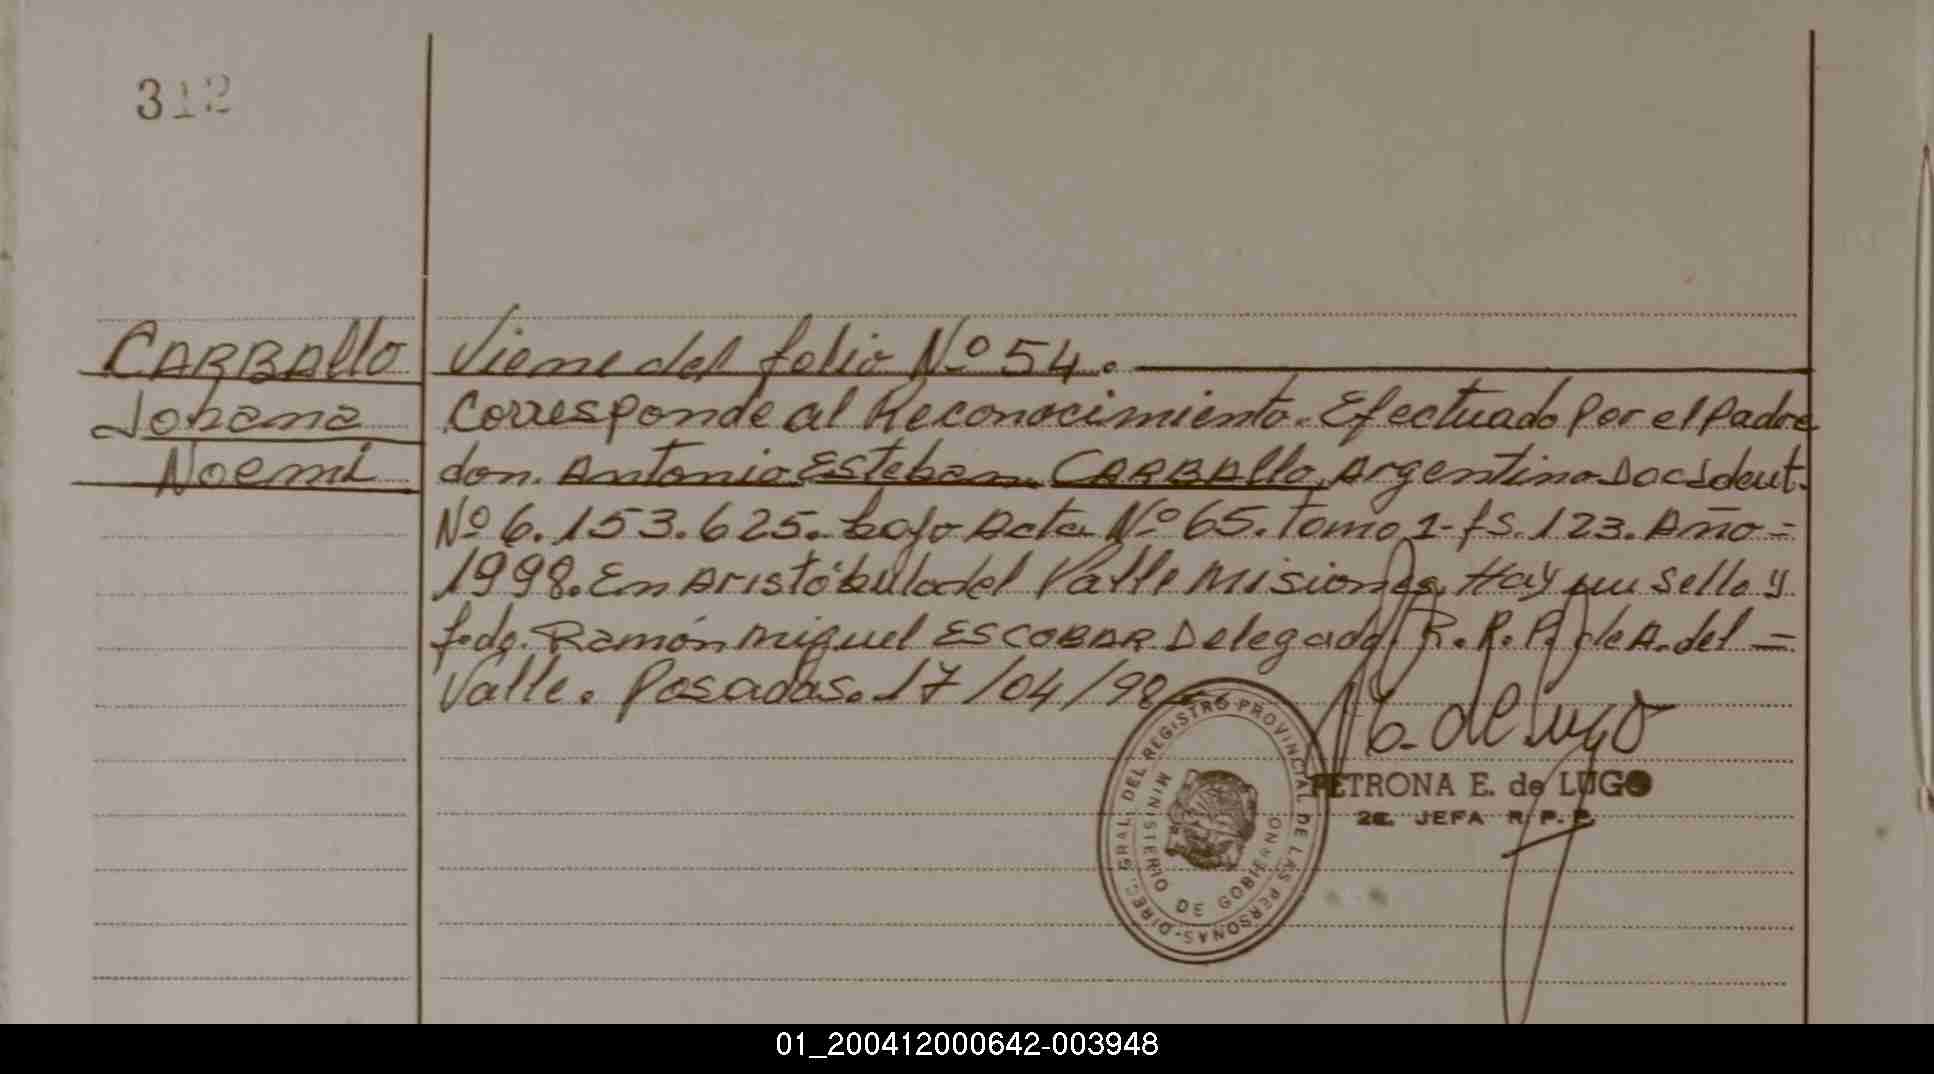 312
CARBAllo
Johana
Noemí
Viene del folio Nº 54.
Corresponde al Reconocimiento. Efectuado Por el Padre
don. Antonio Esteban CARBAllo, Argentino Doc Ident.
Nº 6.153.625. bajo Acta Nº 65. Tomo 1- fs. 123. Año =
1998. En Aristóbulo del Valle Misiones. Hay un sello y
fdo. Ramón Miguel ESCOBAR Delegado. R.R.P. de A. del =
Valle. Posadas. 17/04/98
DIREC. GRAL. DEL REGISTRO PROVINCIAL DE LAS PERSONAS-
MINISTERIO DE GOBIERNO
de Lugo
PETRONA E. de LUGO
JEFA R.P.P.
01_200412000642-003948